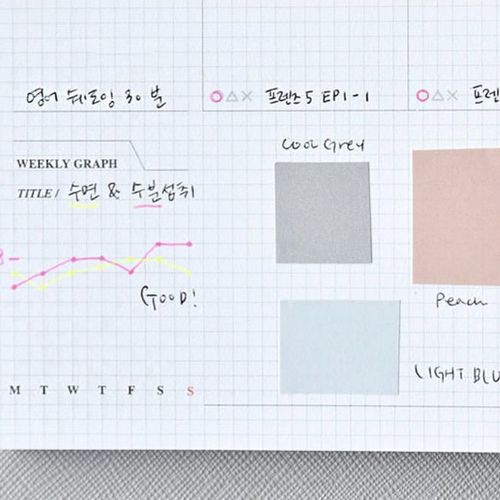 영어 쉐도잉 30분
O△X 프렌즈5 EP1-1
O△X 프렌
WEEKLY GRAPH
TITLE / 수면 & 수분섭취
8
GOOD!
M T W T F S S
Cool Grey
Peach
LIGHT BLU